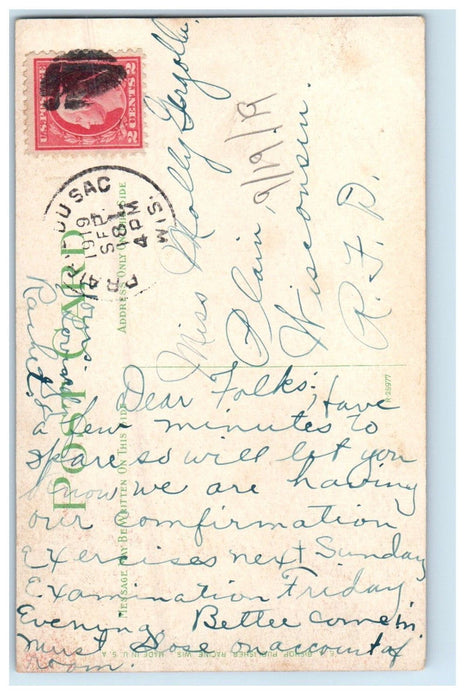 U.S. POSTAGE
2 CENTS 2
DU SAC
1919
SEP
18
4 PM
WIS.
POST CARD
ADDRESS ONLY ON THIS SIDE
MESSAGE MAY BE WRITTEN ON THIS SIDE
Miss Molly
Plain,
Wisconsin.
R. F. D.
9/19/19
R-28977
Dear Folks; Have
a few minutes to
spare so will let you
know we are having
our comfirmation
Exersises next Sunday
Examination Friday
Evening. Bettee come in
must close on account of
room.
PUBLISHER RACINE WIS. MADE IN U.S.A.